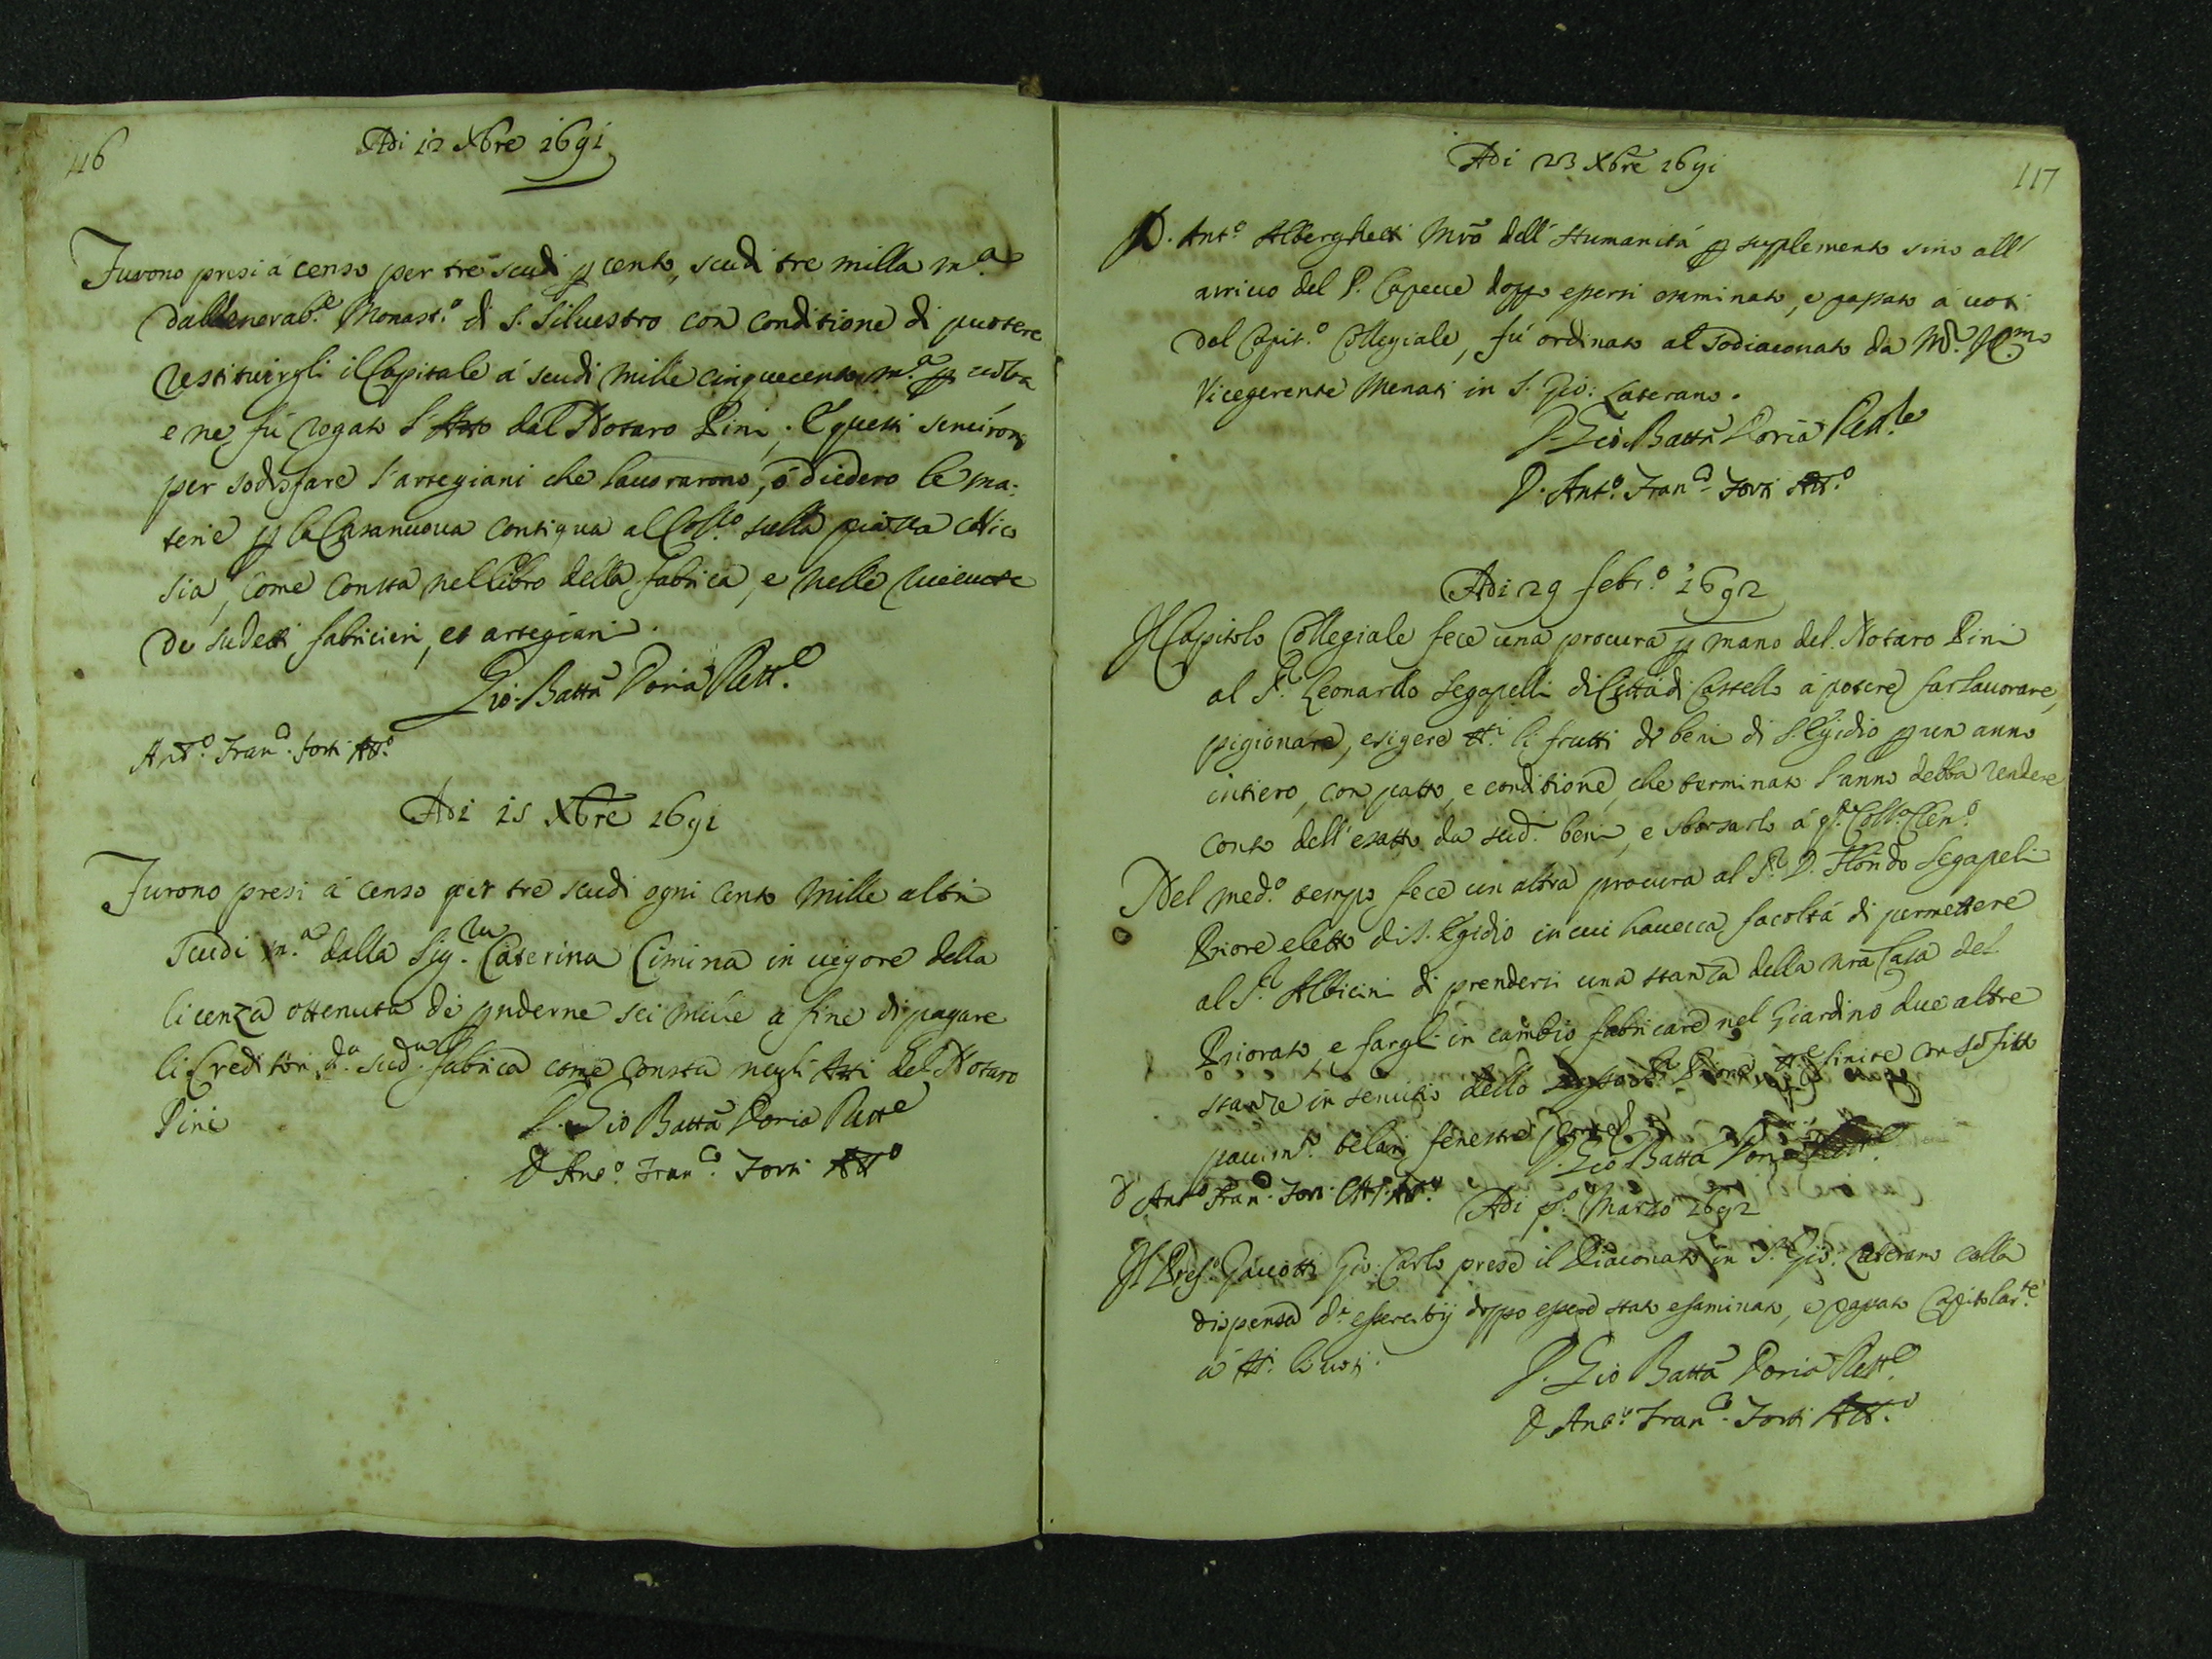 116
Adi 12 Xbre 1691
Furono presi á censo per tre scudi p cento, scudi tre milla m.ta
dal Venerab.e Monast.o di S. Siluestro con conditione di puotere
restituirgli il Capitale á scudi mille cinquecento m.ta p uolta
e ne fú rogato l'Atto dal Notaro Pini. E questi seruirono
per sodisfare l'artegiani che lauorarono, ó diedero le ma-
terie p la Casa nuoua contigua al Coll.o sulla piazza Nico
sia, come consta nel libro della fabrica, e nelle riceuute
de sudetti fabricieri, et artegiani.
Gio. Batta Doria Rett.e
Ant.o Fran.co Forti Att.o
Adi 15 Xbre 1691
Furono presi á censo per tre scudi ogni cento mille altri
scudi m.ta dalla Sig.ra Caterina Cimina in uigore della
licenza ottenuta de prnderne sei mille a fine di pagare
li Creditori d.a sud.a fabrica come consta negli Atti del Notaro
Pini
D. Gio Batta Doria Rett.e
D Ant.o Fran.co Forti Att.o
117
Adi 23 Xbre 1691
D. Ant.o Alberghetti Mro dell'Humanitá p supplemento sino all'
arriuo del P. Capece doppo essersi esaminato, e passato á uoti
dal Capit.o Collegiale, fú ordinato al Sodiaconato da M.r Ill.mo
Vicegerente Menati in S. Gio: Laterano.
D. Gio Batta Doria Rett.e
D. Ant.o Fran.co Forti Att.o
Adi 29 febr.o 1692
Il Capitolo Collegiale fece una procura p mano del Notaro Pini
al S.r Leonardo Segapelli di Cittá di Castello á potere far lauorare,
pigionare, esigere tt.i li frutti de beni di S. Egidio p un anno
intiero, con patto, e conditione, che terminato l'anno debba rendere
conto dell'esatto da sud.i beni, e sborsarlo á q.to Coll.o Clem.o
Nel med.o tempo fece un altra procura al S.r D. Florido Segapeli
Priore eletto di S. Egidio in cui hauecca facoltá di permettere
al S.r Albicini di prendersi una stanza della nra Casa del
Priorato, e fargli in cambio fabricare nel Giardino due altre
stanze in seruitio dello Priore, tt.e finite con sofitto
pauim.to telari fenestre
D. Gio Batta Doria Rett.e
D Ant.o Fran.co Forti Att.o
Adi p.o Marzo 1692
Il Pref.o Gauotti Gio: Carlo prese il Diaconato in S. Gio: Laterano colla
dispensa d.i essercitij doppo essere stato esaminato, e passato Capitolar.te
á tt.i li uoti.
D. Gio Batta Doria Rett.e
D Ant.o Fran.co Forti Att.o